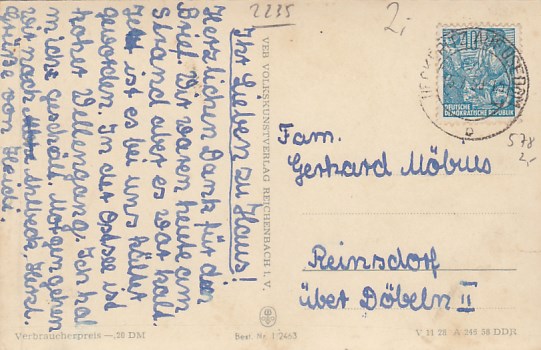 2235
2,-
Ihr Lieben zu Haus!
Herzlichen Dank für den
Brief. Wir waren heute am
Strand aber es war kalt.
Jetzt ist es bei uns kälter
geworden. In der Ostsee ist
hoher Wellengang. Ich hab
mich Morgen gehen
wir nach Ahlbeck. Herzl.
Grüße von
VEB VOLKSKUNSTVERLAG REICHENBACH I. V.
10
DEUTSCHE
DEMOKRATISCHE REPUBLIK
b
578
2,-
Fam.
Gerhard Möbius
Reinsdorf
über Döbeln II
Verbraucherpreis —,20 DM
Best. Nr. 12463
V 11 28 A 248 58 DDR